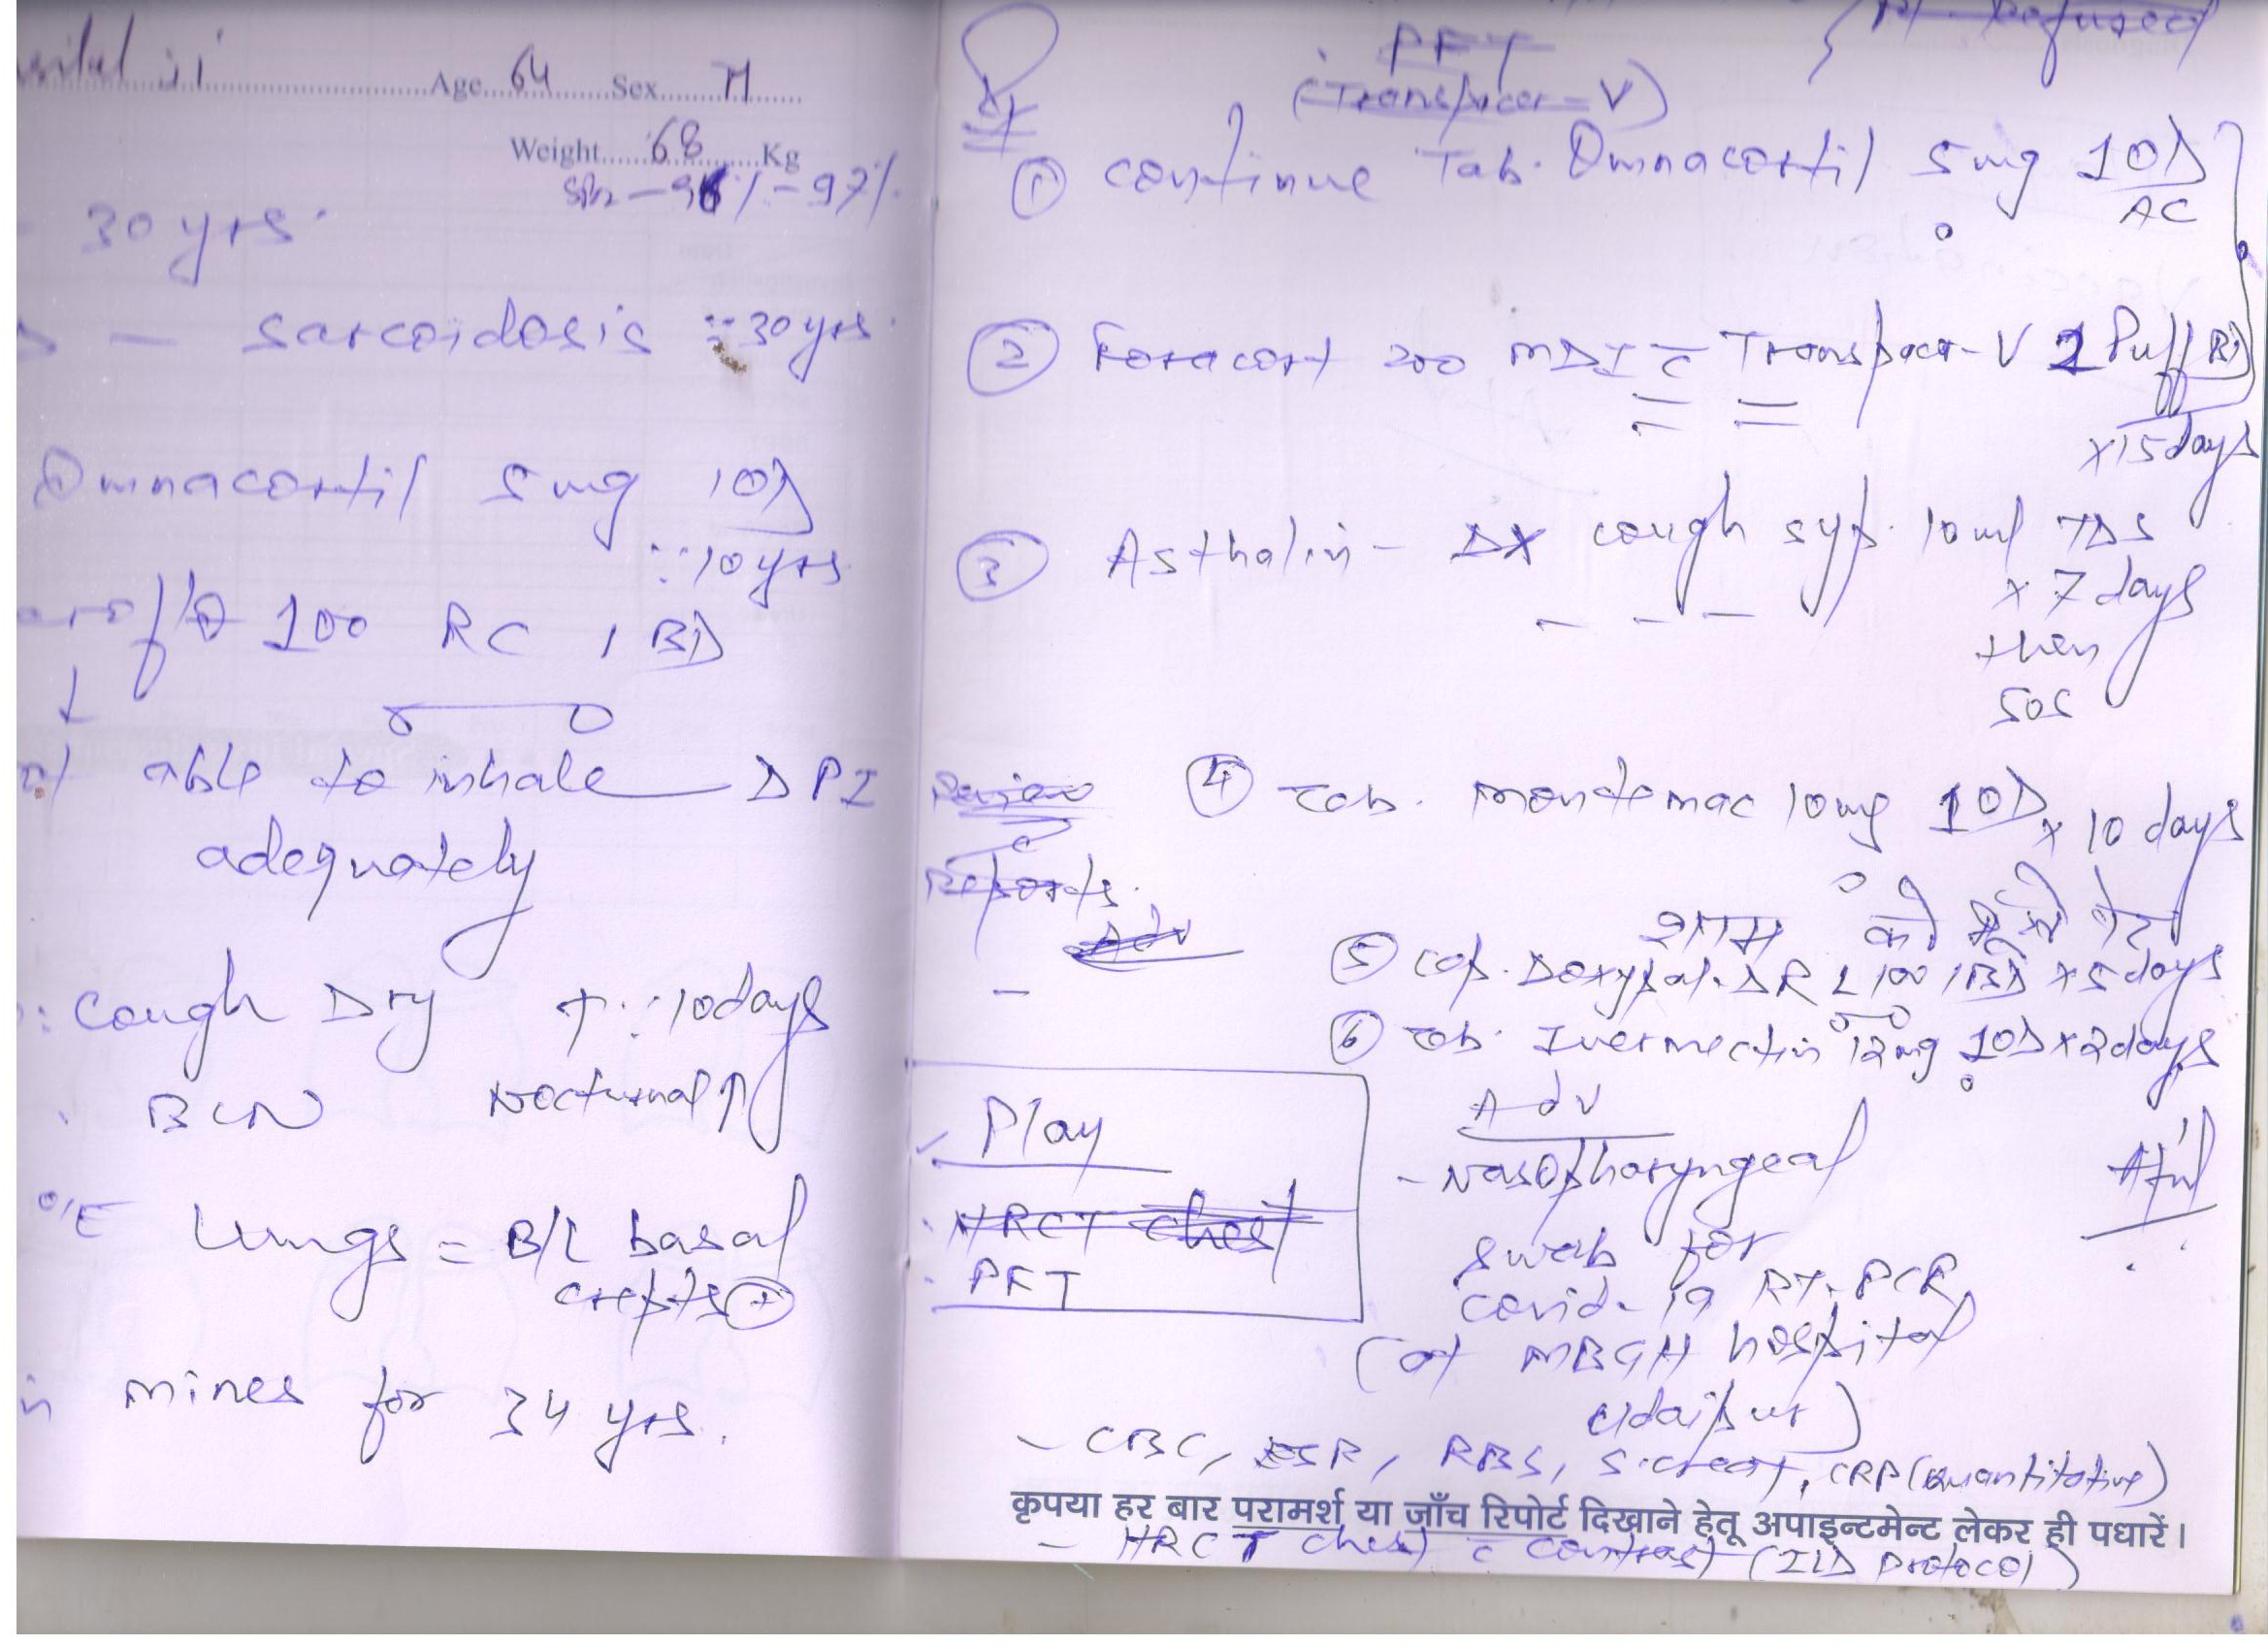 Age 64 Sex M
Weight 68 Kg
SpO2 – 96% – 97%
30 yrs.
— Sarcoidosis ∵ 30 yrs.
Omnacortil 5mg 1OD
∵ 10 yrs
100 RC 1 BD
↓
able to inhale DPI
adequately
: Cough Dry ↑ ∵ 10 days
Nocturnal ↑
O/E Lungs = B/L basal
crepts +
mines for 34 yrs.
PFT
(Transpacer – V)
Pt Refused
① continue Tab. Omnacortil 5mg 1OD
AC
② Foracort 200 MDI c̄ Transpacer-V 2 Puff BD
x 15 days
③ Asthalin – DX cough syp. 10ml TDS
x 7 days
then
SOS
Review
c̄
Reports.
Adv
④ Tab. Montemac 10mg 1OD x 10 days
शाम को
⑤ Cap. Doxypal-DR L 100 1BD x 5 days
⑥ Tab. Ivermectin 12mg 1OD x 2 days
Adv
- Nasopharyngeal
swab for
covid-19 RT-PCR
(at MBGH hospital
Udaipur)
Play
HRCT Chest
PFT
– CBC, ESR, RBS, S.creat, CRP (Quantitative)
कृपया हर बार परामर्श या जाँच रिपोर्ट दिखाने हेतू अपाइन्टमेन्ट लेकर ही पधारें।
– HRCT Chest c̄ contrast (ILD Protocol)